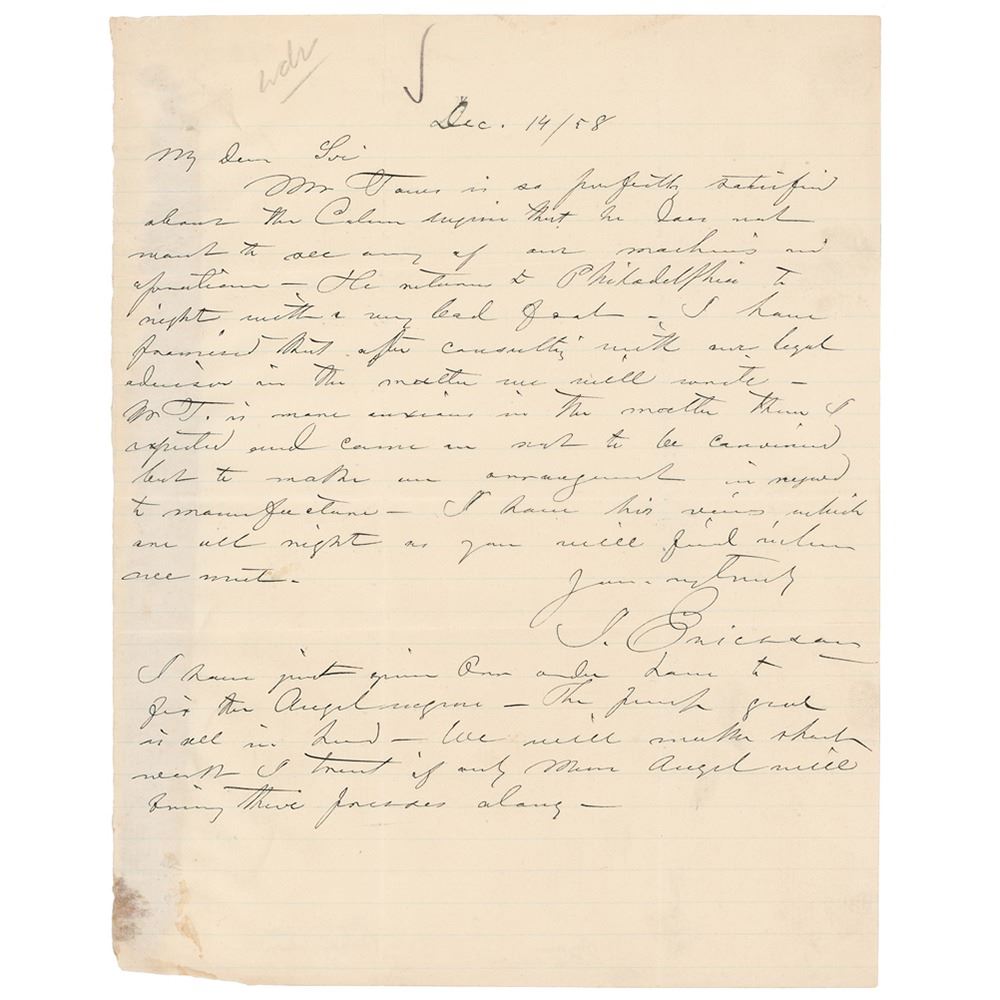 Dec. 14/58
My Dear Sir
Mr Tower is so perfectly satisfied
about the Caloric engine that he does not
want to see any of our machines in
operation – He returns to Philadelphia to
night with a very bad – I have
promised that after consulting with our legal
advisor in the matter we will write –
Mr T. is more anxious in the matter than I
expected and came on not to be convinced
but to make an arrangement in regard
to manufacture – I have his views which
are all right as you will find when
we meet –
Yours very truly
J. Ericsson
I have just given Orr order how to
fix the Angel engine – The pump gear
is all in hand – We will make short
work I trust if only Angel will
bring their presses along –